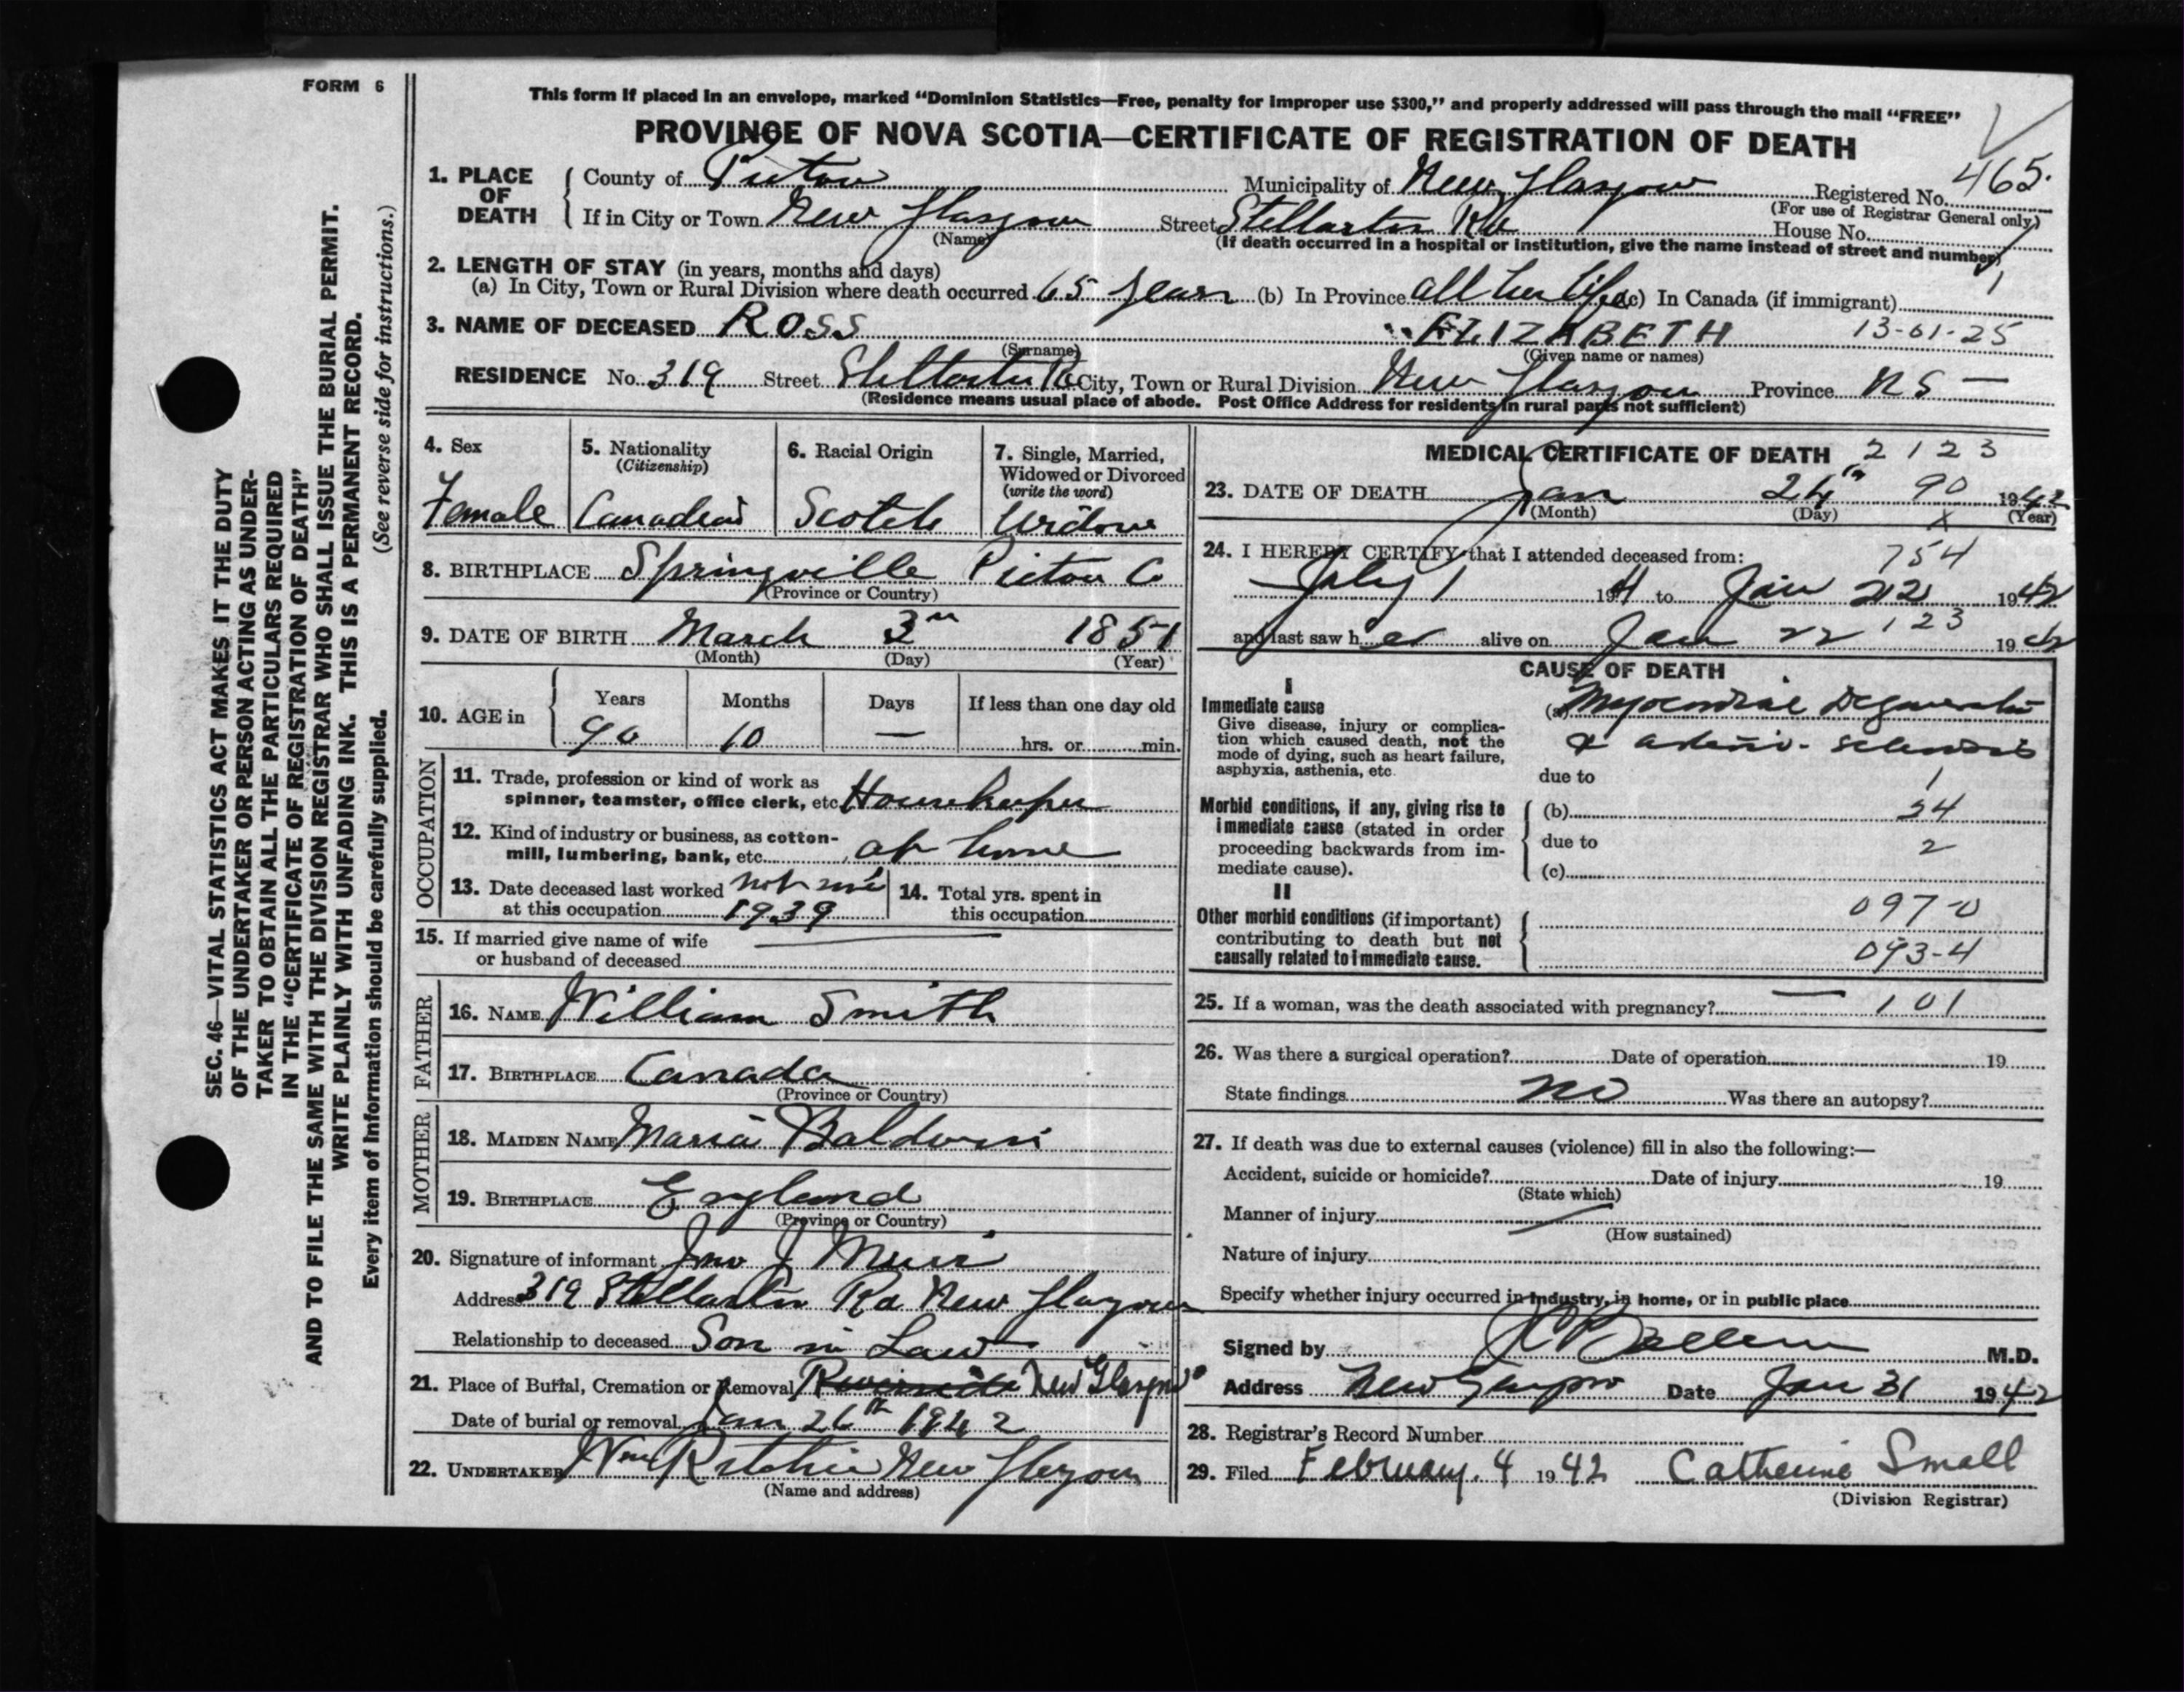 FORM 6
This form if placed in an envelope, marked “Dominion Statistics—Free, penalty for improper use $300,” and properly addressed will pass through the mail “FREE”
PROVINCE OF NOVA SCOTIA—CERTIFICATE OF REGISTRATION OF DEATH
1. PLACE OF DEATH
County of Pictou Municipality of New Glasgow Registered No. 465.
(For use of Registrar General only)
If in City or Town New Glasgow Street Stellarton Rd House No.
(Name)
(If death occurred in a hospital or institution, give the name instead of street and number)
2. LENGTH OF STAY (in years, months and days)
(a) In City, Town or Rural Division where death occurred 65 years (b) In Province all her life (c) In Canada (if immigrant)
3. NAME OF DECEASED ROSS ELIZABETH 13-01-25
(Surname) (Given name or names)
RESIDENCE No. 319 Street Stellarton Rd City, Town or Rural Division New Glasgow Province NS —
(Residence means usual place of abode. Post Office Address for residents in rural parts not sufficient)
4. Sex
Female
5. Nationality
(Citizenship)
Canadian
6. Racial Origin
Scotch
7. Single, Married,
Widowed or Divorced
(write the word)
Widow
8. BIRTHPLACE Springville Pictou Co
(Province or Country)
9. DATE OF BIRTH March 3rd 1851
(Month) (Day) (Year)
10. AGE in
Years Months Days If less than one day old
90 10 — hrs. or min.
OCCUPATION
11. Trade, profession or kind of work as
spinner, teamster, office clerk, etc. Housekeeper
12. Kind of industry or business, as cotton-
mill, lumbering, bank, etc. at home
13. Date deceased last worked not since
at this occupation 1939
14. Total yrs. spent in
this occupation
15. If married give name of wife
or husband of deceased
FATHER
16. NAME William Smith
17. BIRTHPLACE Canada
(Province or Country)
MOTHER
18. MAIDEN NAME Maria Baldwin
19. BIRTHPLACE England
(Province or Country)
20. Signature of informant Jno J Muir
Address 319 Stellarton Rd New Glasgow
Relationship to deceased Son in Law
21. Place of Burial, Cremation or Removal Riverside New Glasgow
Date of burial or removal Jan 26th 1942
22. UNDERTAKER Wm Ritchie New Glasgow
(Name and address)
MEDICAL CERTIFICATE OF DEATH 2123
23. DATE OF DEATH Jan 24th 90 1942
(Month) (Day) x (Year)
24. I HEREBY CERTIFY that I attended deceased from: 754
July 1 1941 to Jan 22 1942
and last saw her alive on Jan 22 123 1942
CAUSE OF DEATH
I
Immediate cause
Give disease, injury or complica-
tion which caused death, not the
mode of dying, such as heart failure,
asphyxia, asthenia, etc.
(a) Myocardial Degeneration
& arterio-sclerosis
due to 1
Morbid conditions, if any, giving rise to
immediate cause (stated in order
proceeding backwards from im-
mediate cause).
(b) 34
due to 2
(c)
II
Other morbid conditions (if important)
contributing to death but not
causally related to immediate cause.
097-0
093-4
25. If a woman, was the death associated with pregnancy? — 101
26. Was there a surgical operation? Date of operation 19
State findings no Was there an autopsy?
27. If death was due to external causes (violence) fill in also the following:—
Accident, suicide or homicide? Date of injury 19
(State which)
Manner of injury
(How sustained)
Nature of injury
Specify whether injury occurred in industry, in home, or in public place
Signed by M.D.
Address New Glasgow Date Jan 31 1942
28. Registrar's Record Number
29. Filed February. 4 1942 Catherine Small
(Division Registrar)
SEC. 46—VITAL STATISTICS ACT MAKES IT THE DUTY
OF THE UNDERTAKER OR PERSON ACTING AS UNDER-
TAKER TO OBTAIN ALL THE PARTICULARS REQUIRED
IN THE “CERTIFICATE OF REGISTRATION OF DEATH”
AND TO FILE THE SAME WITH THE DIVISION REGISTRAR WHO SHALL ISSUE THE BURIAL PERMIT.
WRITE PLAINLY WITH UNFADING INK. THIS IS A PERMANENT RECORD.
Every item of information should be carefully supplied. (See reverse side for instructions.)